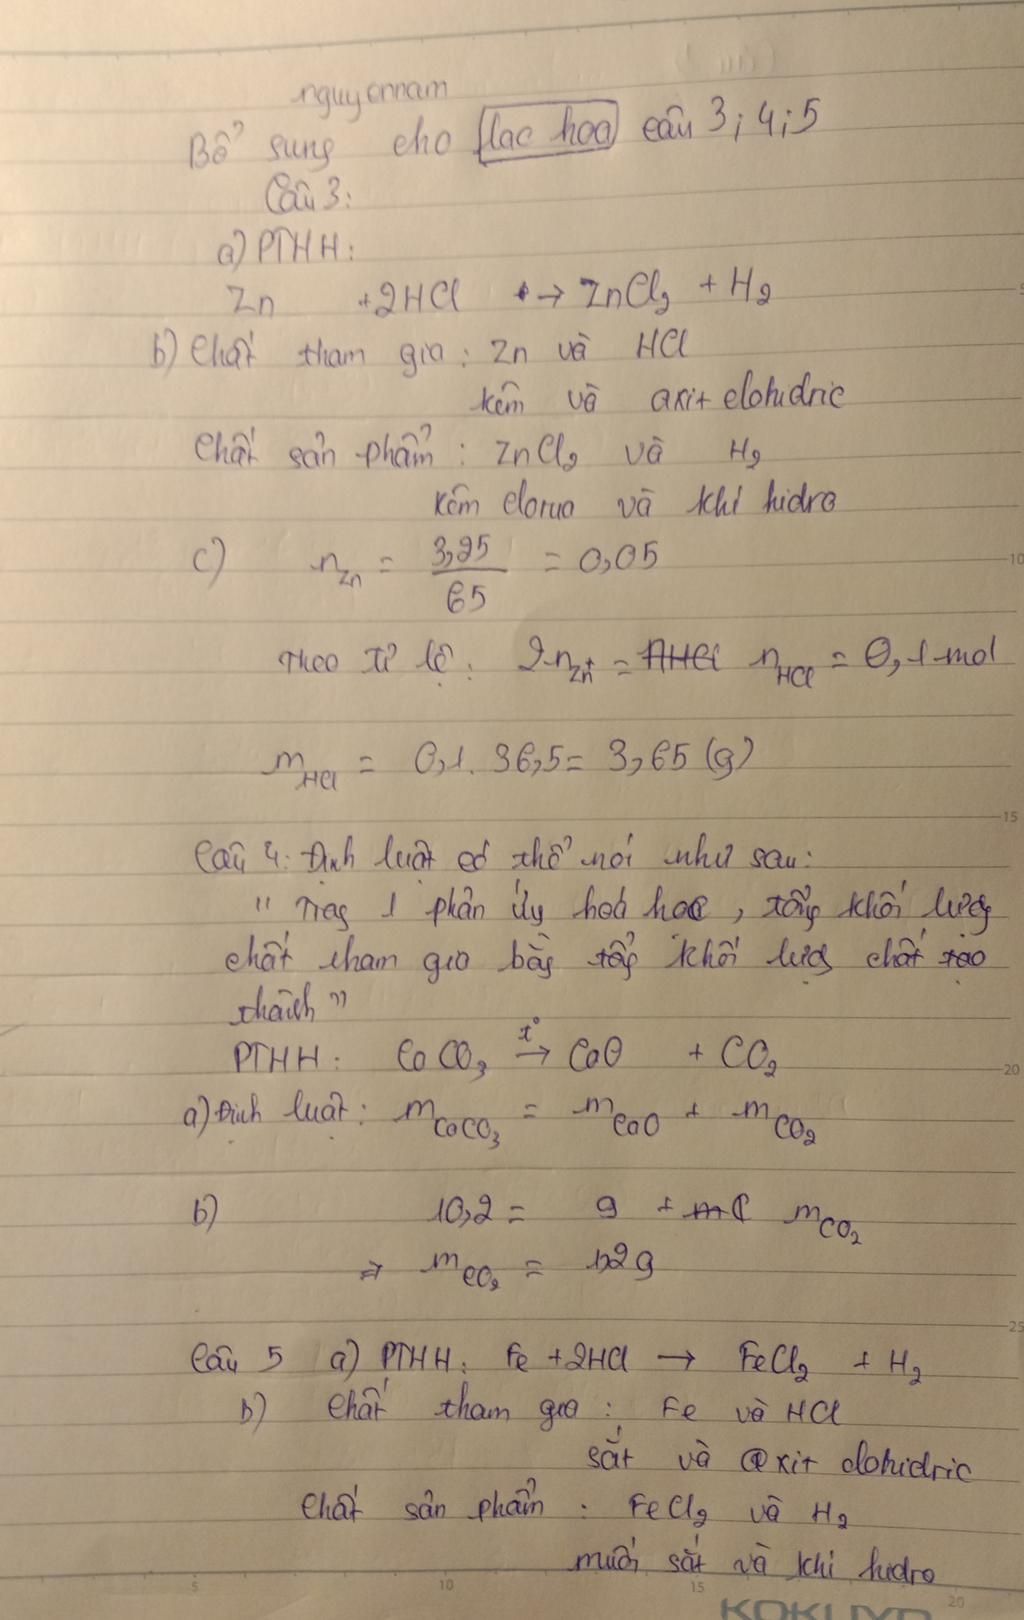 nguyennam
Bổ sung cho lac hoa câu 3; 4; 5
Câu 3:
a) PTHH:
Zn +2HCl → ZnCl₂ + H₂
b) Chất tham gia : Zn và HCl
kẽm và axit clohidric
Chất sản phẩm : ZnCl₂ và H₂
kẽm clorua và khí hidro
c) nZn = 3,25/65 = 0,05
Theo tỉ lệ : 2nZn = nHCl = 0,1 mol
mHCl = 0,1. 36,5 = 3,65 (g)
Câu 4: Định luật có thể nói như sau:
" Trog 1 phản ứg hoá học, tổg khối lượg
chất tham gia bằg tổg khối lượg chất tạo
thành "
PTHH: CaCO₃ t°→ CaO + CO₂
a) Định luật: mCaCO₃ = mCaO + mCO₂
b) 10,2 = 9 + mCO₂
⇒ mCO₂ = 1,2g
Câu 5 a) PTHH: Fe +2HCl → FeCl₂ + H₂
b) Chất tham gia : Fe và HCl
sắt và axit clohidric
Chất sản phẩm : FeCl₂ và H₂
muối sắt và khí hidro
5 10 15 20
5
10
15
20
25
KOKUYO